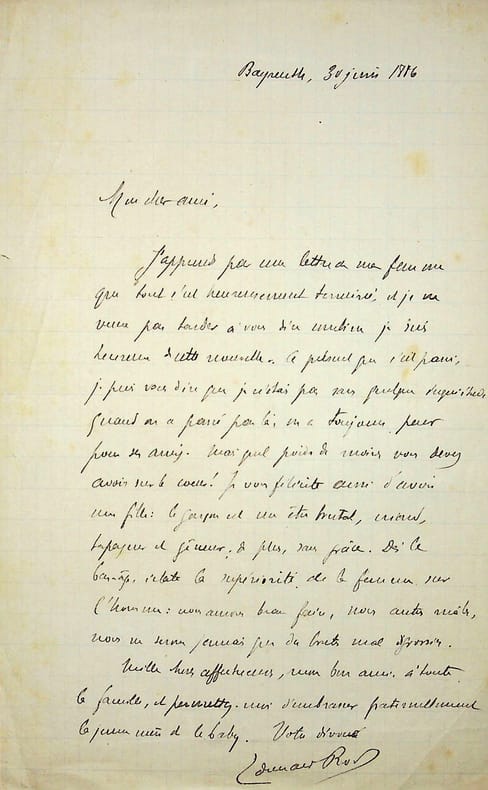 Bayreuth, 30 juin 1886
Mon cher ami,
J'apprends par une lettre de ma femme
que tout s'est heureusement terminé, et je ne
veux pas tarder à vous dire combien je suis
heureux de cette nouvelle. à présent que c'est passé,
je puis vous dire que je n'étais pas sans quelque inquiétude
quand on a passé par là, on a toujours peur
pour ses amis. Mais quel poids de moins vous devez
avoir sur le coeur! Je vous félicite aussi d'avoir
une fille: le garçon est un être brutal, criard,
tapageur et gêneur, de plus, sans grâce. Dès le
bas-âge, éclate la supériorité de la femme sur
l'homme: nous avons beau faire, nous autres mâles,
nous ne serons jamais que des brutes mal dégrossies.
Mille choses affectueuses, mon bon ami, à toute
la famille, et permettez-moi d'embrasser fraternellement
la jeune mère et le baby. Votre dévoué
Edouard Rod